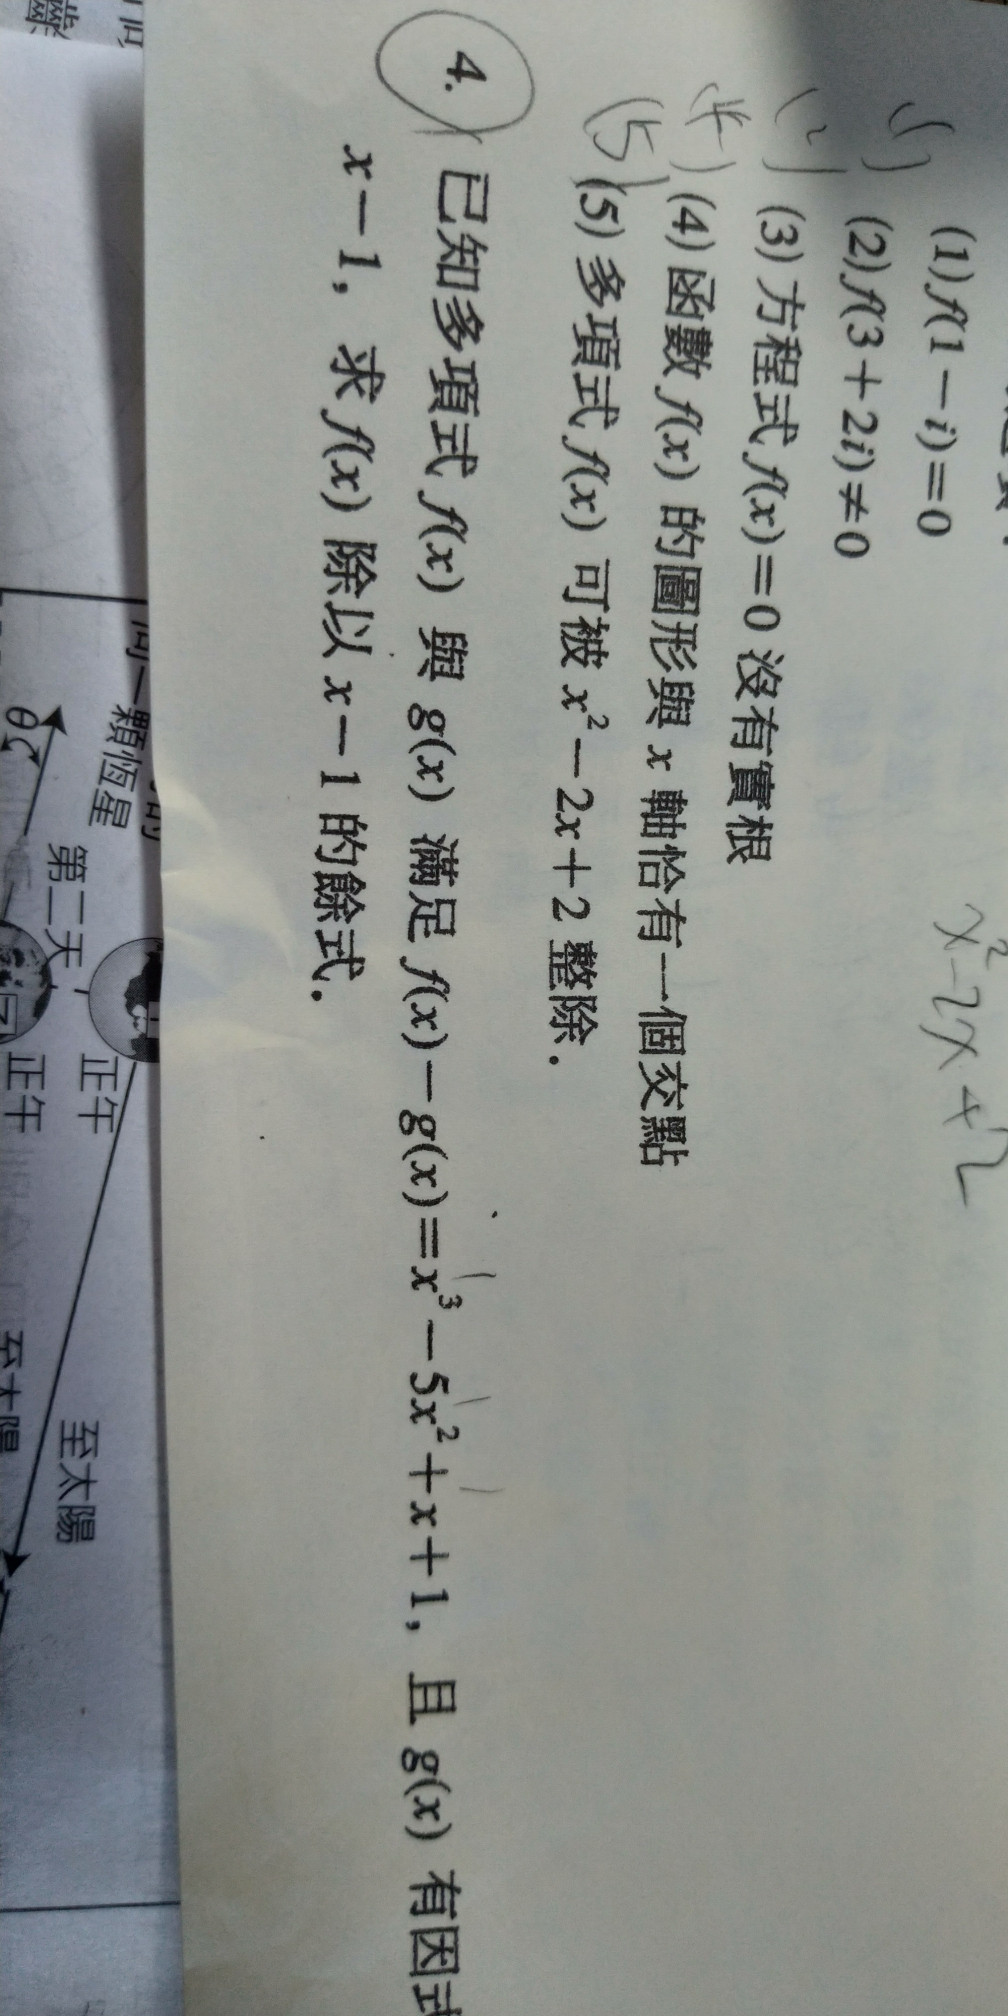 x²-2x+2
(1) (1) f(1-i)=0
(2) (2) f(3+2i)≠0
(3) 方程式 f(x)=0 沒有實根
(4) (4) 函數 f(x) 的圖形與 x 軸恰有一個交點
(5) (5) 多項式 f(x) 可被 x²-2x+2 整除.
4. 已知多項式 f(x) 與 g(x) 滿足 f(x)-g(x)=x³-5x²+x+1, 且 g(x) 有因式
x-1, 求 f(x) 除以 x-1 的餘式.
一顆恆星
第二天
正午
至太陽
θ
正午
至太陽